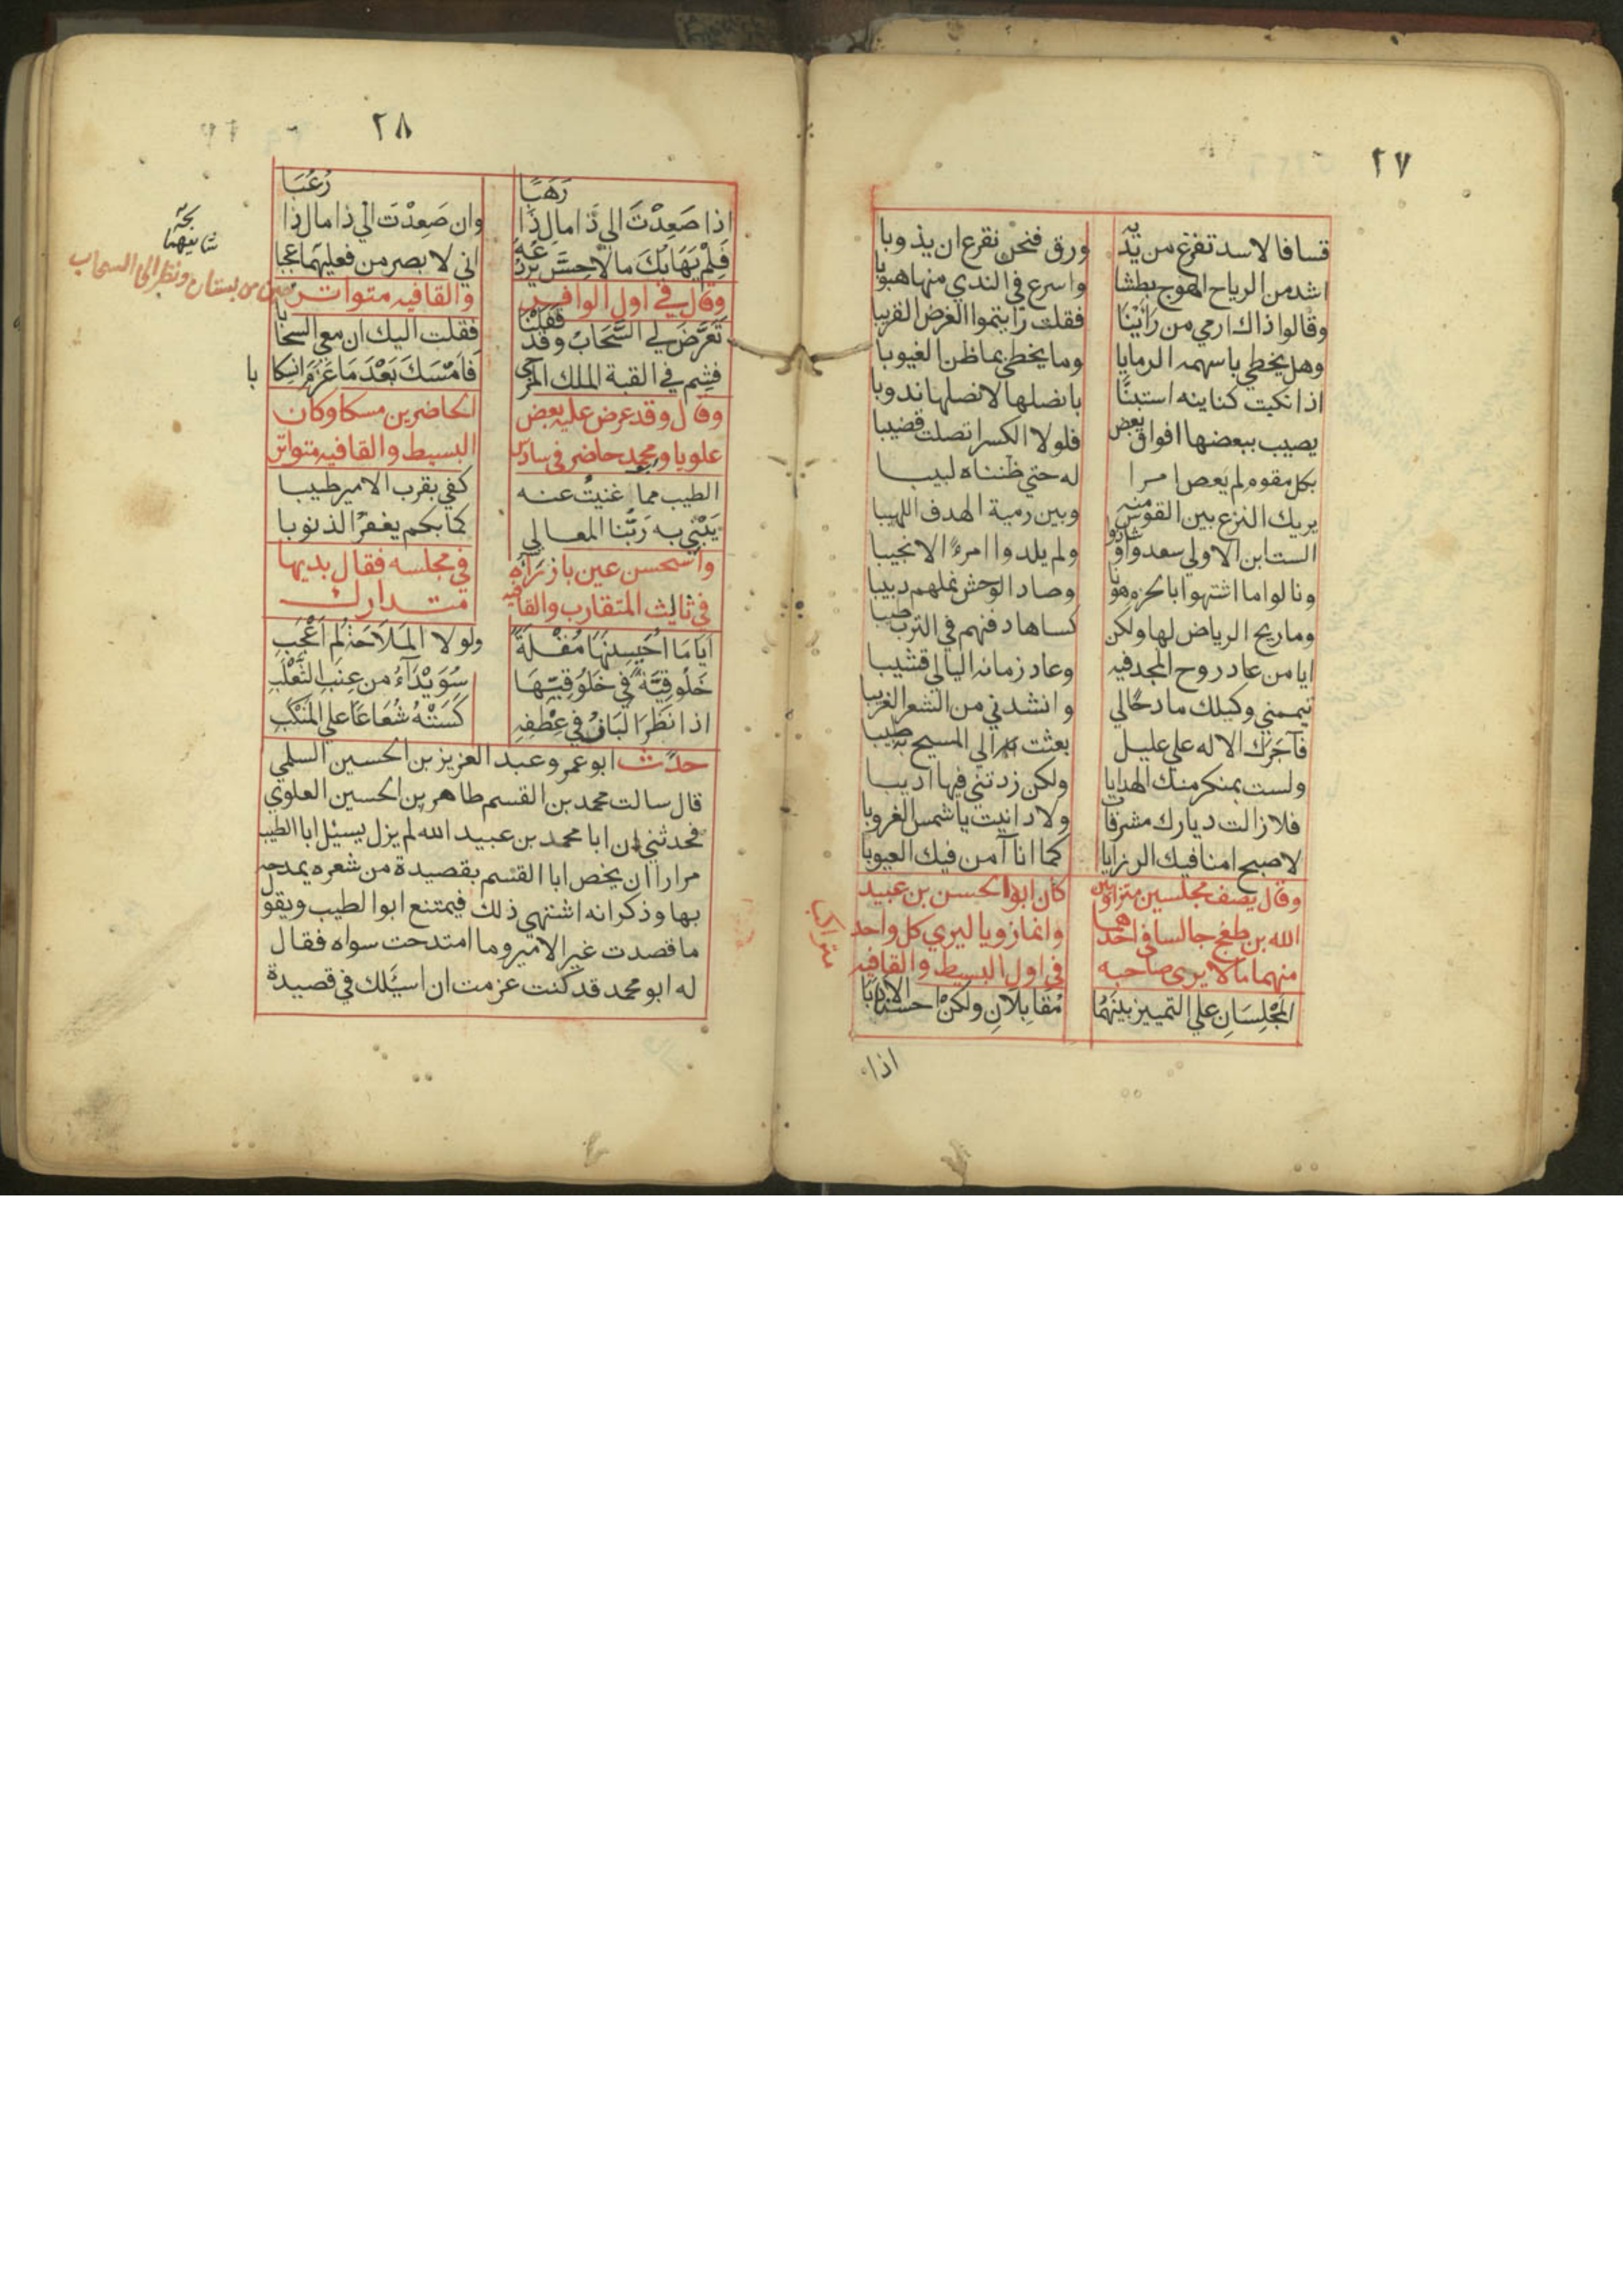 ٢٧
قسا فالاسد تفزع من يديه ورق فنحن نفزع ان يذوبا
اشد من الرياح الهوج بطشا واسرع في الندي منها هبوبا
وقالوا ذاك ارمي من راينا فقلت رايتموا الغرض القريبا
وهل يخطي باسهمه الرمايا وما يخطي بما ظن الغيوبا
اذا نكبت كناينه استبنا بانضلها لانصلها ندوبا
يصيب ببعضها افواق بعض فلولا الكسر اتصلت قضيبا
بكل مقوم لم يعص امرا له حتي ظنناه لبيبا
يريك النزع بين القوس منه وبين رمية الهدف اللهيبا
الست ابن الاولي سعدوا وشادوا ولم يلدوا امرءً الا نجيبا
ونالوا ما اشتهوا بالحزم هونا وصاد الوحش نملهم دبيبا
وما ريح الرياض لها ولكن كساها دفنهم في الترب طيبا
ايا من عاد روح المجد فيه وعاد زمانه اليالي قشيبا
تيممني وكيلك مادحًا لي وانشدني من الشعر الغريبا
فآجرك الاله علي عليل بعثت الي المسيح به طبيبا
ولست بمنكر منك الهدايا ولكن زدتني فيها اديبا
فلا زالت ديارك مشرقات ولا دانيت يا شمس الغروبا
لاصبح امنا فيك الرزايا كما انا آمن فيك العيوبا
وقال يصف مجلسين متزاويين كان ابو الحسن بن عبيد
الله بن طغج جالسا في احدهما وانما زويا ليري كل واحد
منهما ما لا يرى صاحبه في اول البسيط والقافيه
متراكب
المَجْلِسَانِ علي التمييز بينَهُما مُقَابِلَانِ ولكنْ احسنا الادبَا
اذا
٢٨
اذا صَعِدْتَ الي ذَا مال ذَا رَهَبًا وان صَعِدْتَ الي ذا مال ذا رُغبَا
فَلِمْ يَهَابُكَ ما لا حِسَّ يردعُهُ اني لا بصر من فعليهما عجبا
وقال في اول الوافر والقافيه متواتر
من بستان ونظر الى السحاب
تَعَرَّضَ لي السَّحَابُ وقد قفلنا فقلت اليك ان معي السحابا
فشِم في القبة الملك المرجي فَامْسَكَ بَعْدَ مَا عَزَمَ انسِكا
با
وقال وقد عرض عليه بعض الحاضرين مسكا وكان
علويا ومحمد حاضر في سادس البسيط والقافيه متواتر
الطيب مما غنيتُ عنه كفي بقرب الامير طيبا
يَبْنِي به رَبُّنا المعالي كما بكم يغفرُ الذنوبا
واستحسن عين باز نراه في مجلسه فقال بديها
في ثالث المتقارب والقافيه متدارك
ايَا مَا اُحَيسِنَهَا مُقْلَةً ولولا المَلَاحَةُ لم اَعْجَبِ
خَلُوقِيَّةً في خَلُوقِيِّهَا سُوَيْدَآءُ من عِنَبِ الثَّعْلَبِ
اذا نَظَرَ البَازُ في عِطْفِهِ كَسَتْهُ شُعَاعًا علي المَنْكِبِ
حدّث ابو عمرو عبد العزيز بن الحسين السلمي
قال سالت محمد بن القسم طاهر بن الحسين العلوي
فحدثني ان ابا محمد بن عبيد الله لم يزل يسئل ابا الطيب
مرارا ان يخص ابا القسم بقصيدة من شعره يمدحه
بها وذكر انه اشتهي ذلك فيمتنع ابوا لطيب ويقول
ما قصدت غير الامير وما امتدحت سواه فقال
له ابو محمد قد كنت عزمت ان اسئلك في قصيدة